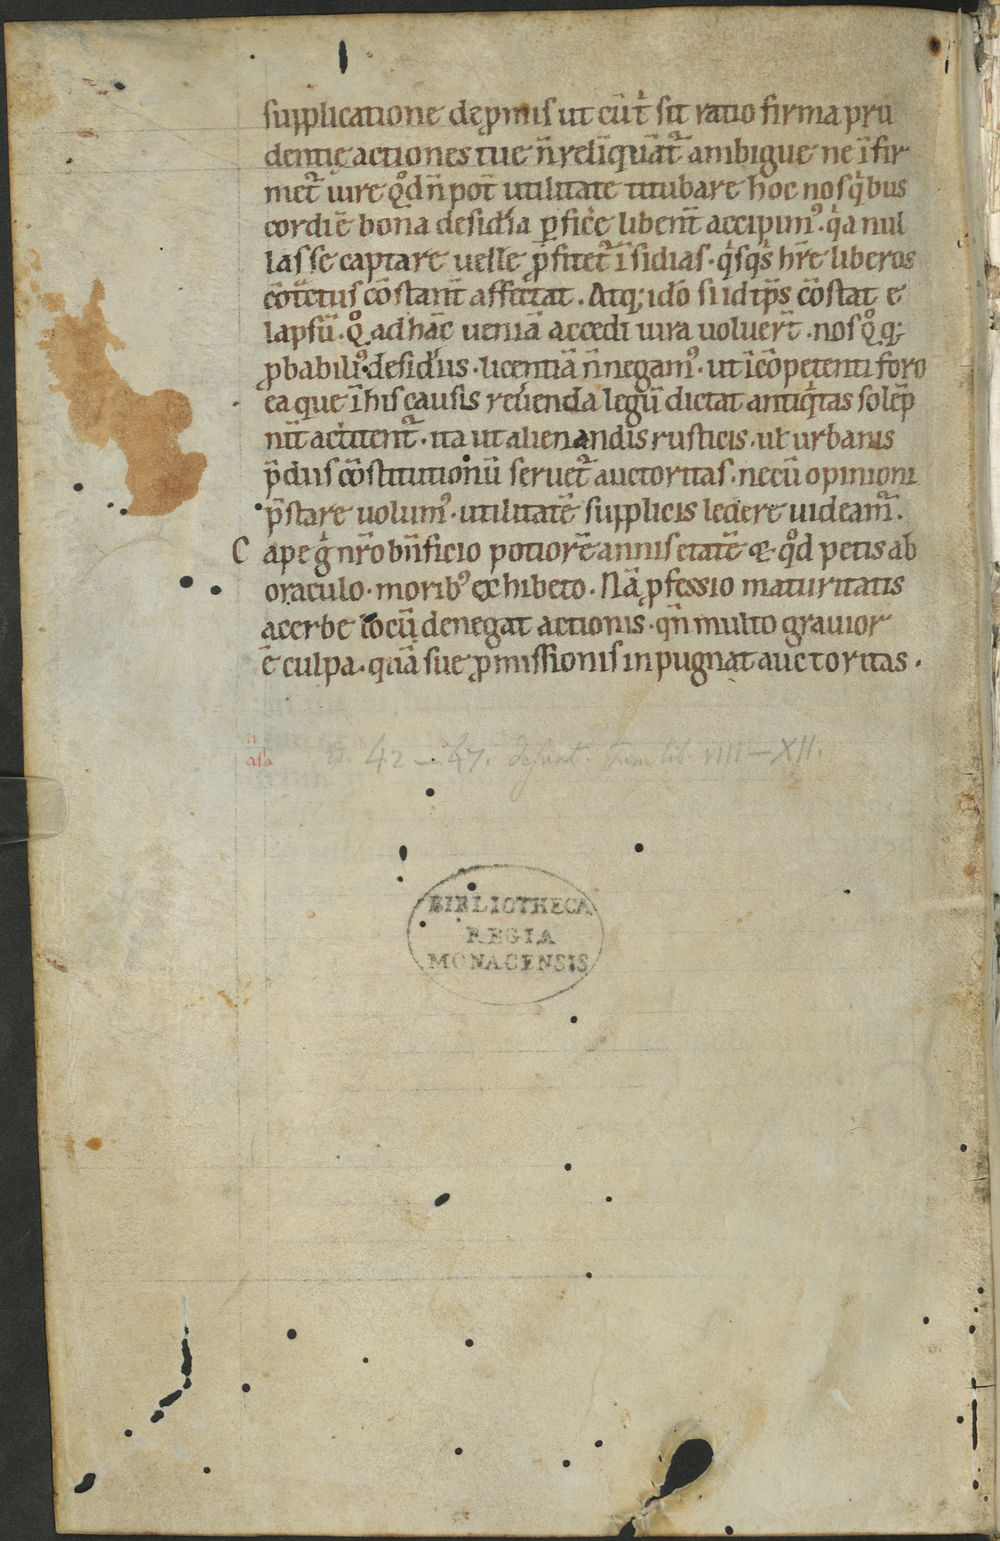 supplicatione depͥmis ut cūt͛ sit ratio firma pru
dentię actiones tue n̄ relīquāt᷑ ambigue ne īfir
met᷑ iure qͦd n̄ pot̄ utilitate titubare hoc nos qͥbus
cordiē bona desid͛ia ꝑfic͛e libent̄ accipimꝰ. qͥa nul
las se captare uelle ꝓfitet᷑ īsidias. qͥsqͥs hr̄e liberos
cōtētus cōstant̄
affectat. Atq; idō si id ip̄s cōstat e
lapsū. qͦ ad hāc ueniā accedi iura uoluer̄t. nos qͦq;
ꝓbabilibꝰ desid͛iis. licentiā n̄ negamꝰ. ut ī cōpetenti foro
ea que ī his causis reu͛enda legū dictat antiqͥtas solēp
nit͛ actitent᷑. ita ut alienandis rusticis. ut urbanis
p̄diis cōstitutionū seruet᷑ auctoritas. ne cū opinioni
p̄stare uolumꝰ. utilitatē supplicis ledere uideam᷑.
Cape gͦ nr̄o bn̄ficio potiorē annis etatē & qͦd petis ab
oraculo. moribꝰ exhibeto. Nā ꝓfessio maturitatis
acerbe locū denegat actionis. qn̄ multo grauior
ē culpa. quā sue ꝓmissionis inpugnat auctoritas.
42 – 47. desunt. Tum lib. VIIII – XII.
asa
BIBLIOTHECA
REGIA
MONACENSIS